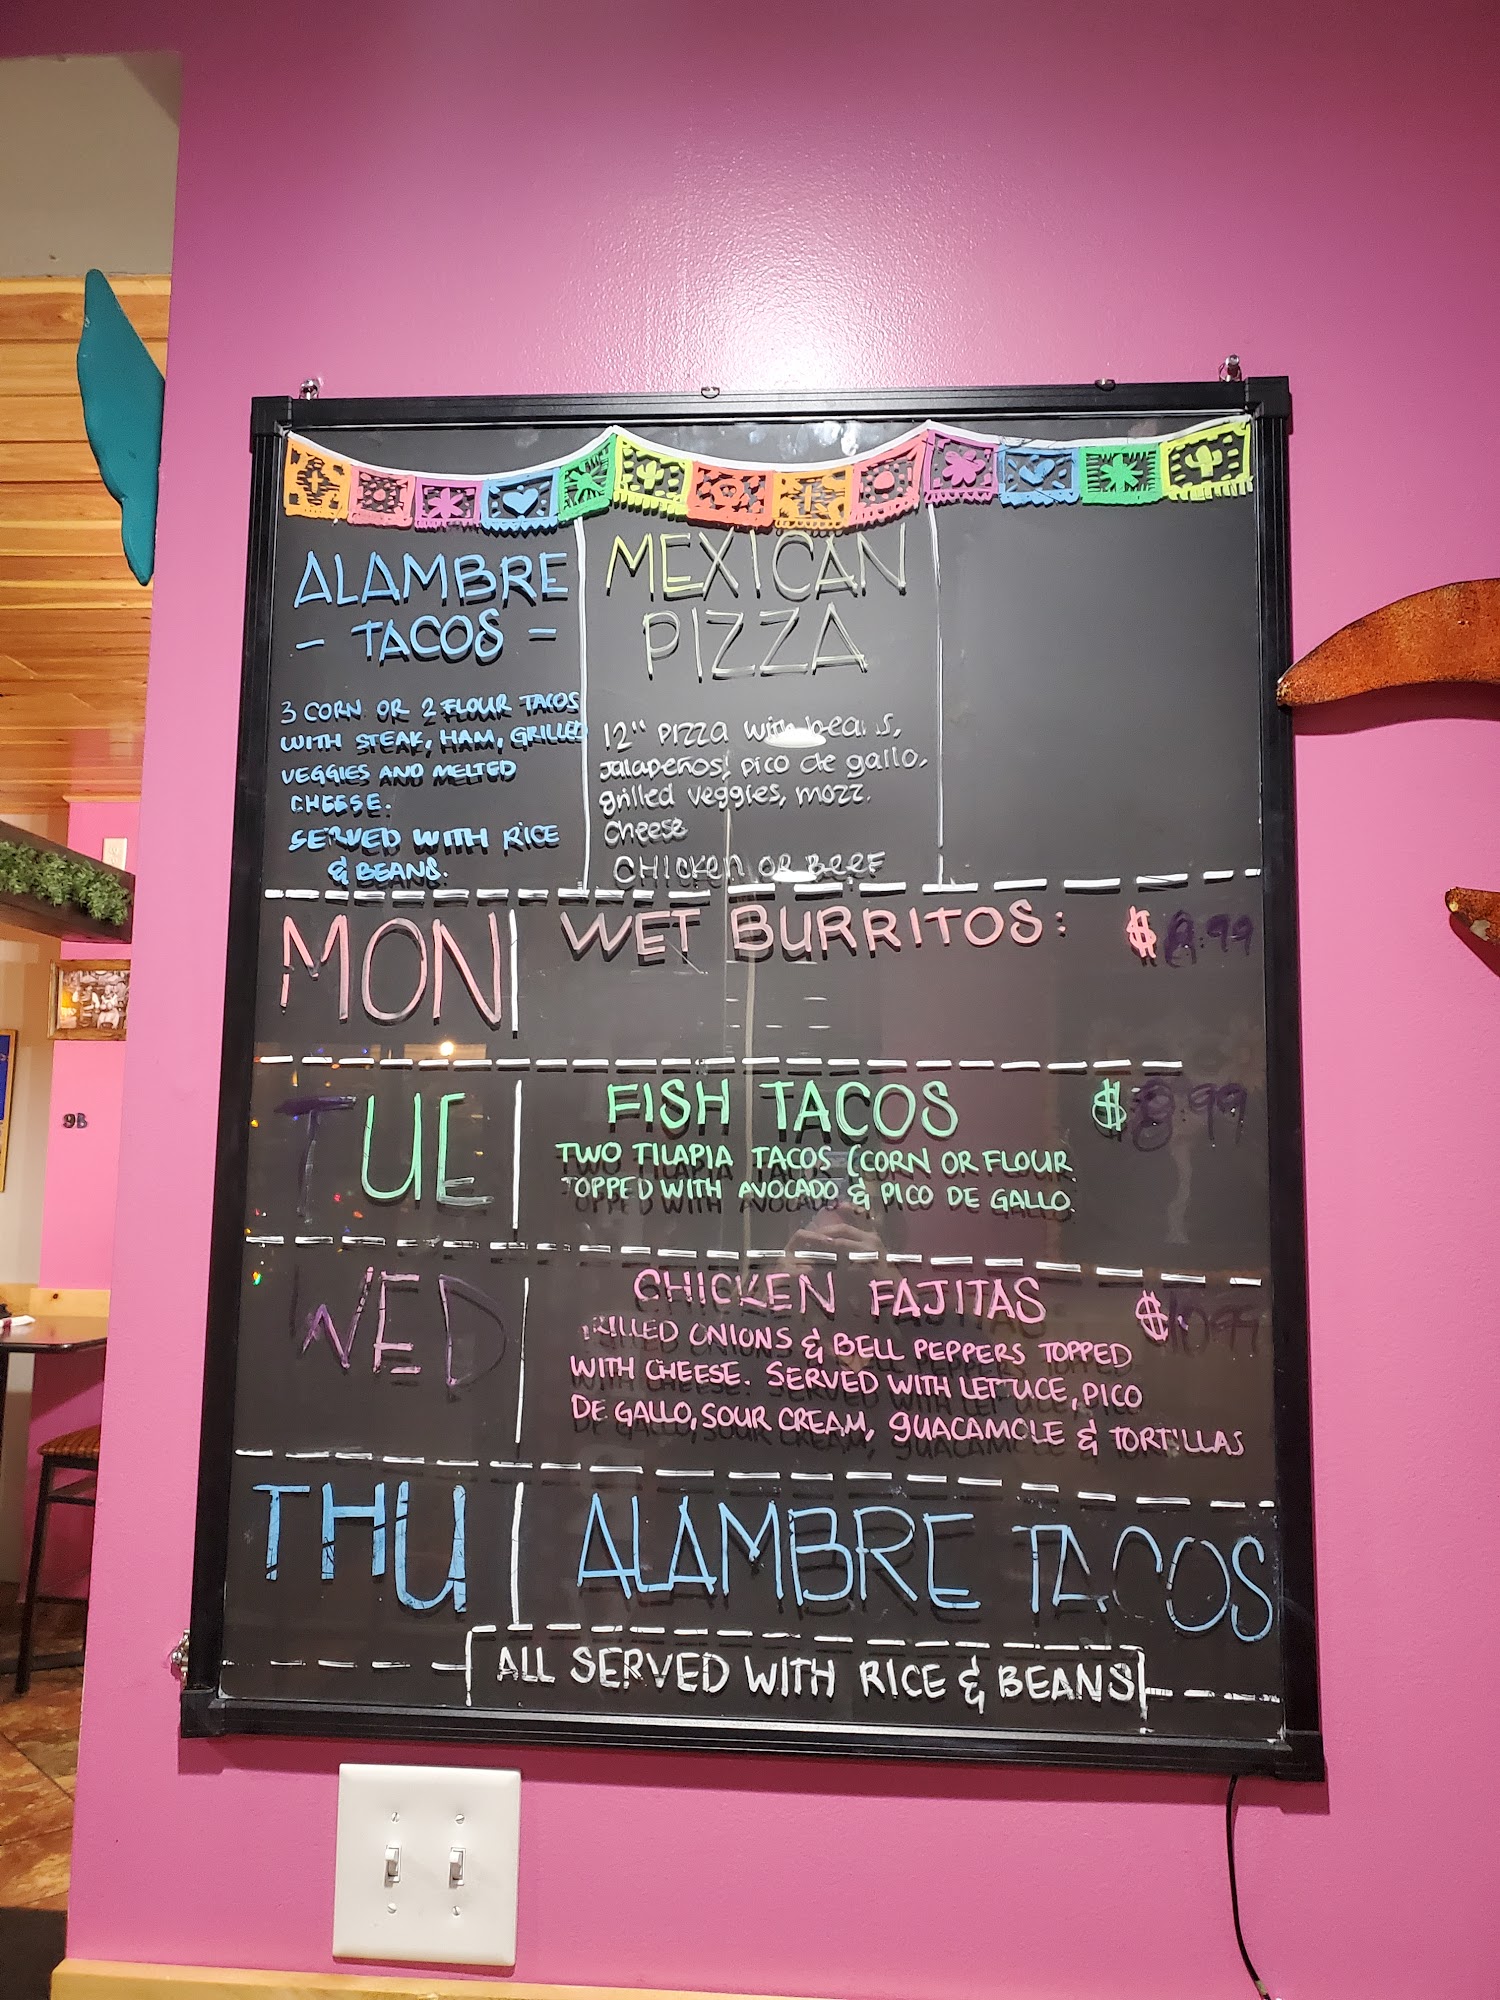 ALAMBRE
- TACOS -
3 CORN OR 2 FLOUR TACOS
WITH STEAK, HAM, GRILLED
VEGGIES AND MELTED
CHEESE.
SERVED WITH RICE
& BEANS.
MEXICAN
PIZZA
12" PIZZA with beans,
Jalapeños, pico de gallo,
grilled veggies, mozz.
Cheese
CHICKEN OR BEEF
MON WET BURRITOS: $ 8.99
TUE FISH TACOS $ 8.99
TWO TILAPIA TACOS (CORN OR FLOUR
TOPPED WITH AVOCADO & PICO DE GALLO.
WED CHICKEN FAJITAS $ 10.99
GRILLED ONIONS & BELL PEPPERS TOPPED
WITH CHEESE. SERVED WITH LETTUCE, PICO
DE GALLO, SOUR CREAM, GUACAMOLE & TORTILLAS
THU ALAMBRE TACOS
ALL SERVED WITH RICE & BEANS
9B